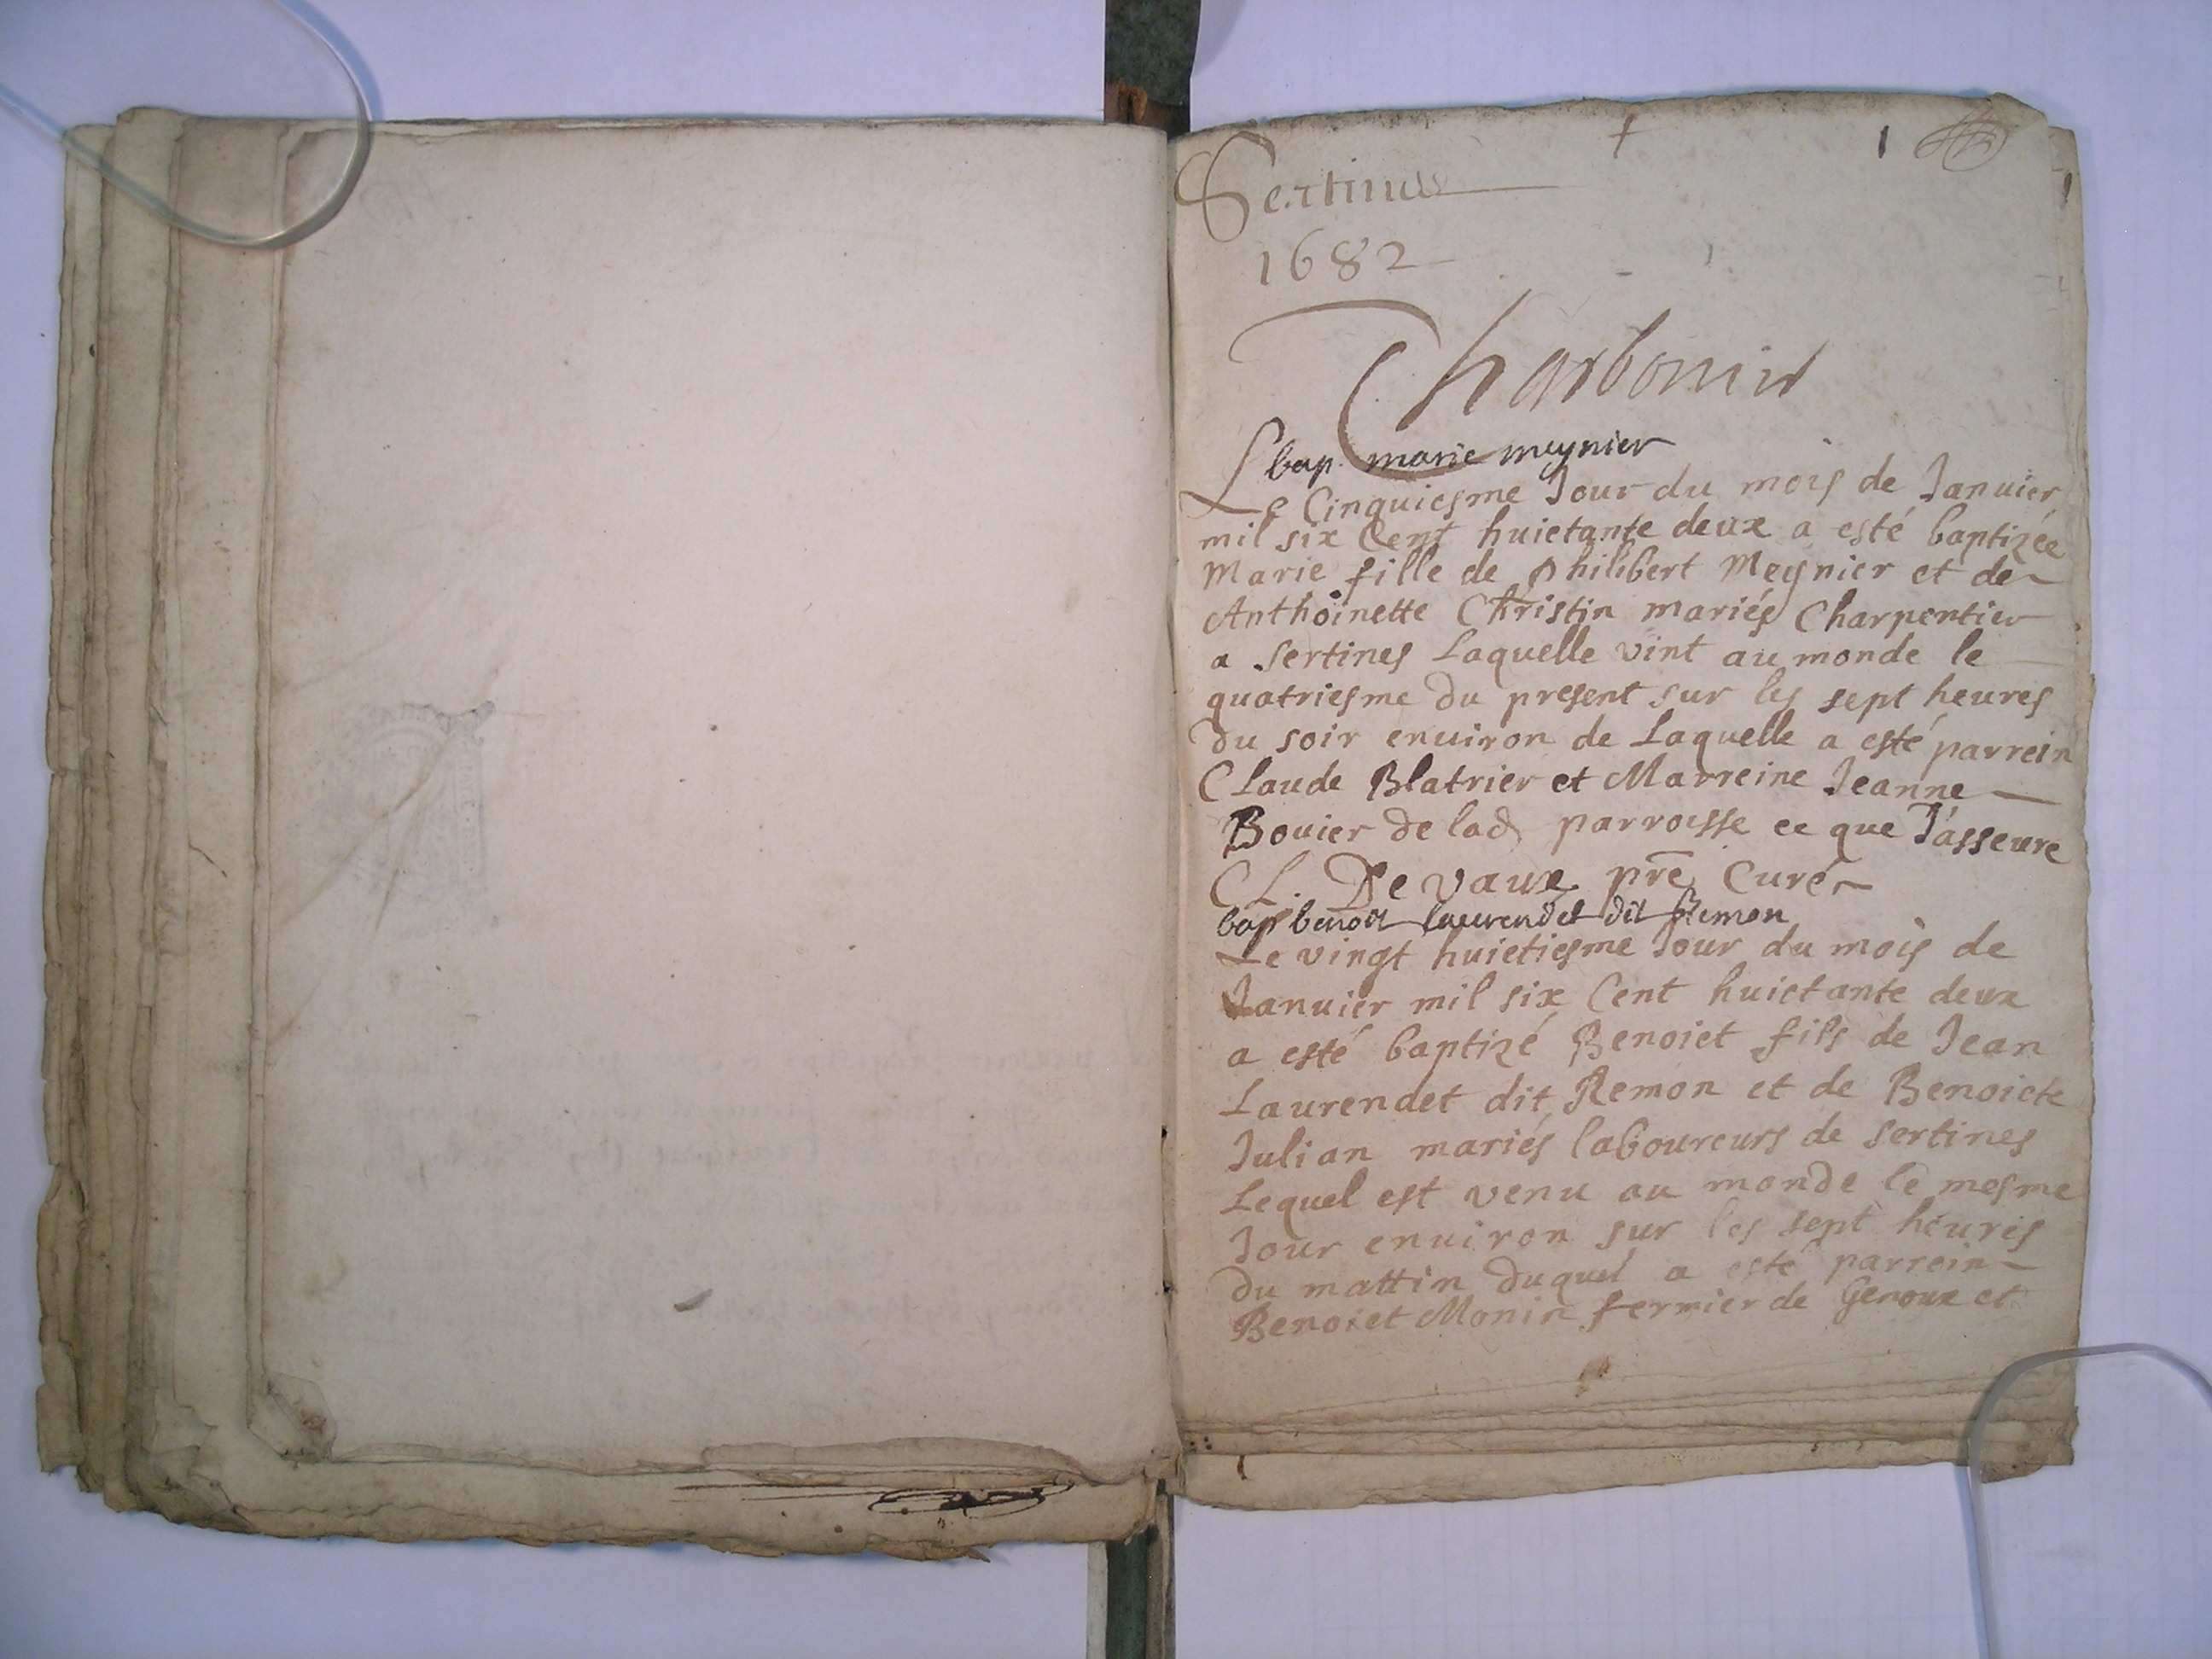 1
Sertines
1682
Charbonier
bap. marie meynier
Le Cinquiesme Jour du mois de Januier
mil six Cent huictante deux a esté baptizée
Marie fille de Philibert Meynier et de
Anthoinette Christin mariés Charpentier
a Sertines Laquelle vint au monde le
quatriesme du present sur les sept heures
du soir enuiron de Laquelle a esté parrein
Claude Blatrier et Marreine Jeanne
Bouier de lad parroisse ce que J'asseure
CL. De vaux pre Curé
bap benoit laurendet dit Remon
Le vingt huictiesme Jour du mois de
Januier mil six Cent huictante deux
a esté baptizé Benoict fils de Jean
Laurendet dit Remon et de Benoicte
Julian mariés laboureurs de Sertines
Lequel est venu au monde le mesme
Jour enuiron sur les sept heures
du mattin duquel a esté parrein
Benoict Monin fermier de Genoux et